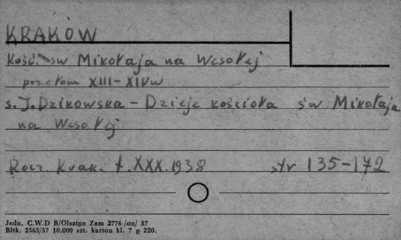 KRAKÓW
Kość. św Mikołaja na Wesołej
przełom XIII-XIV w
s. J. Dzikowska - Dzieje kościoła św Mikołaja
na Wesołej
Rocz Krak. t. XXX. 1938 str 135-172
Jedn. C.W.D B/Olsztyn Zam 2776 /on/ 57
Bltk. 2563/57 10.000 szt. karton kl. 7 g 220.